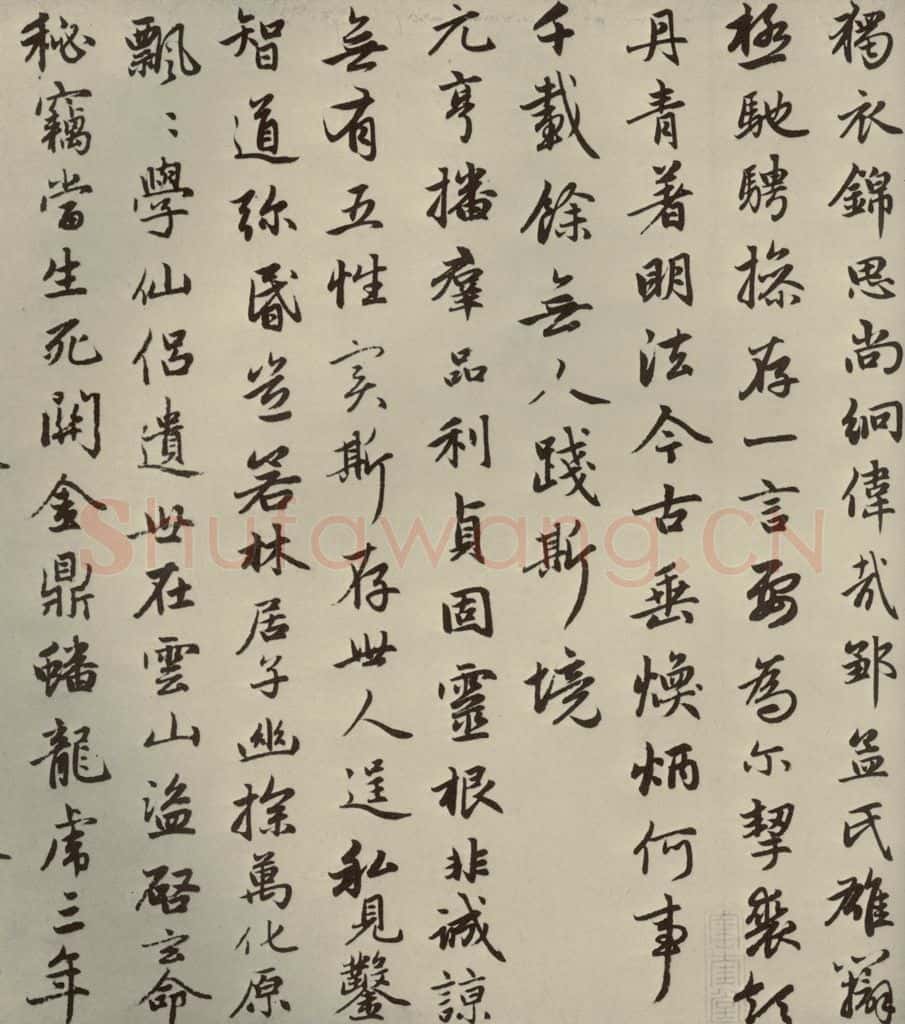 獨衣錦思尚絅偉哉鄒孟氏雄辯
極馳騁操存一言要為尔挈裘領
丹青著明法今古垂煥炳何事
千載餘無人踐斯境
元亨播羣品利貞固靈根非誠諒
無有五性實斯存世人逞私見鑿
智道弥昏豈若林居子幽探萬化原
飄〻學仙侶遺世在雲山盜啓玄命
秘竊當生死關金鼎蟠龍虎三年
Shufawang.CN